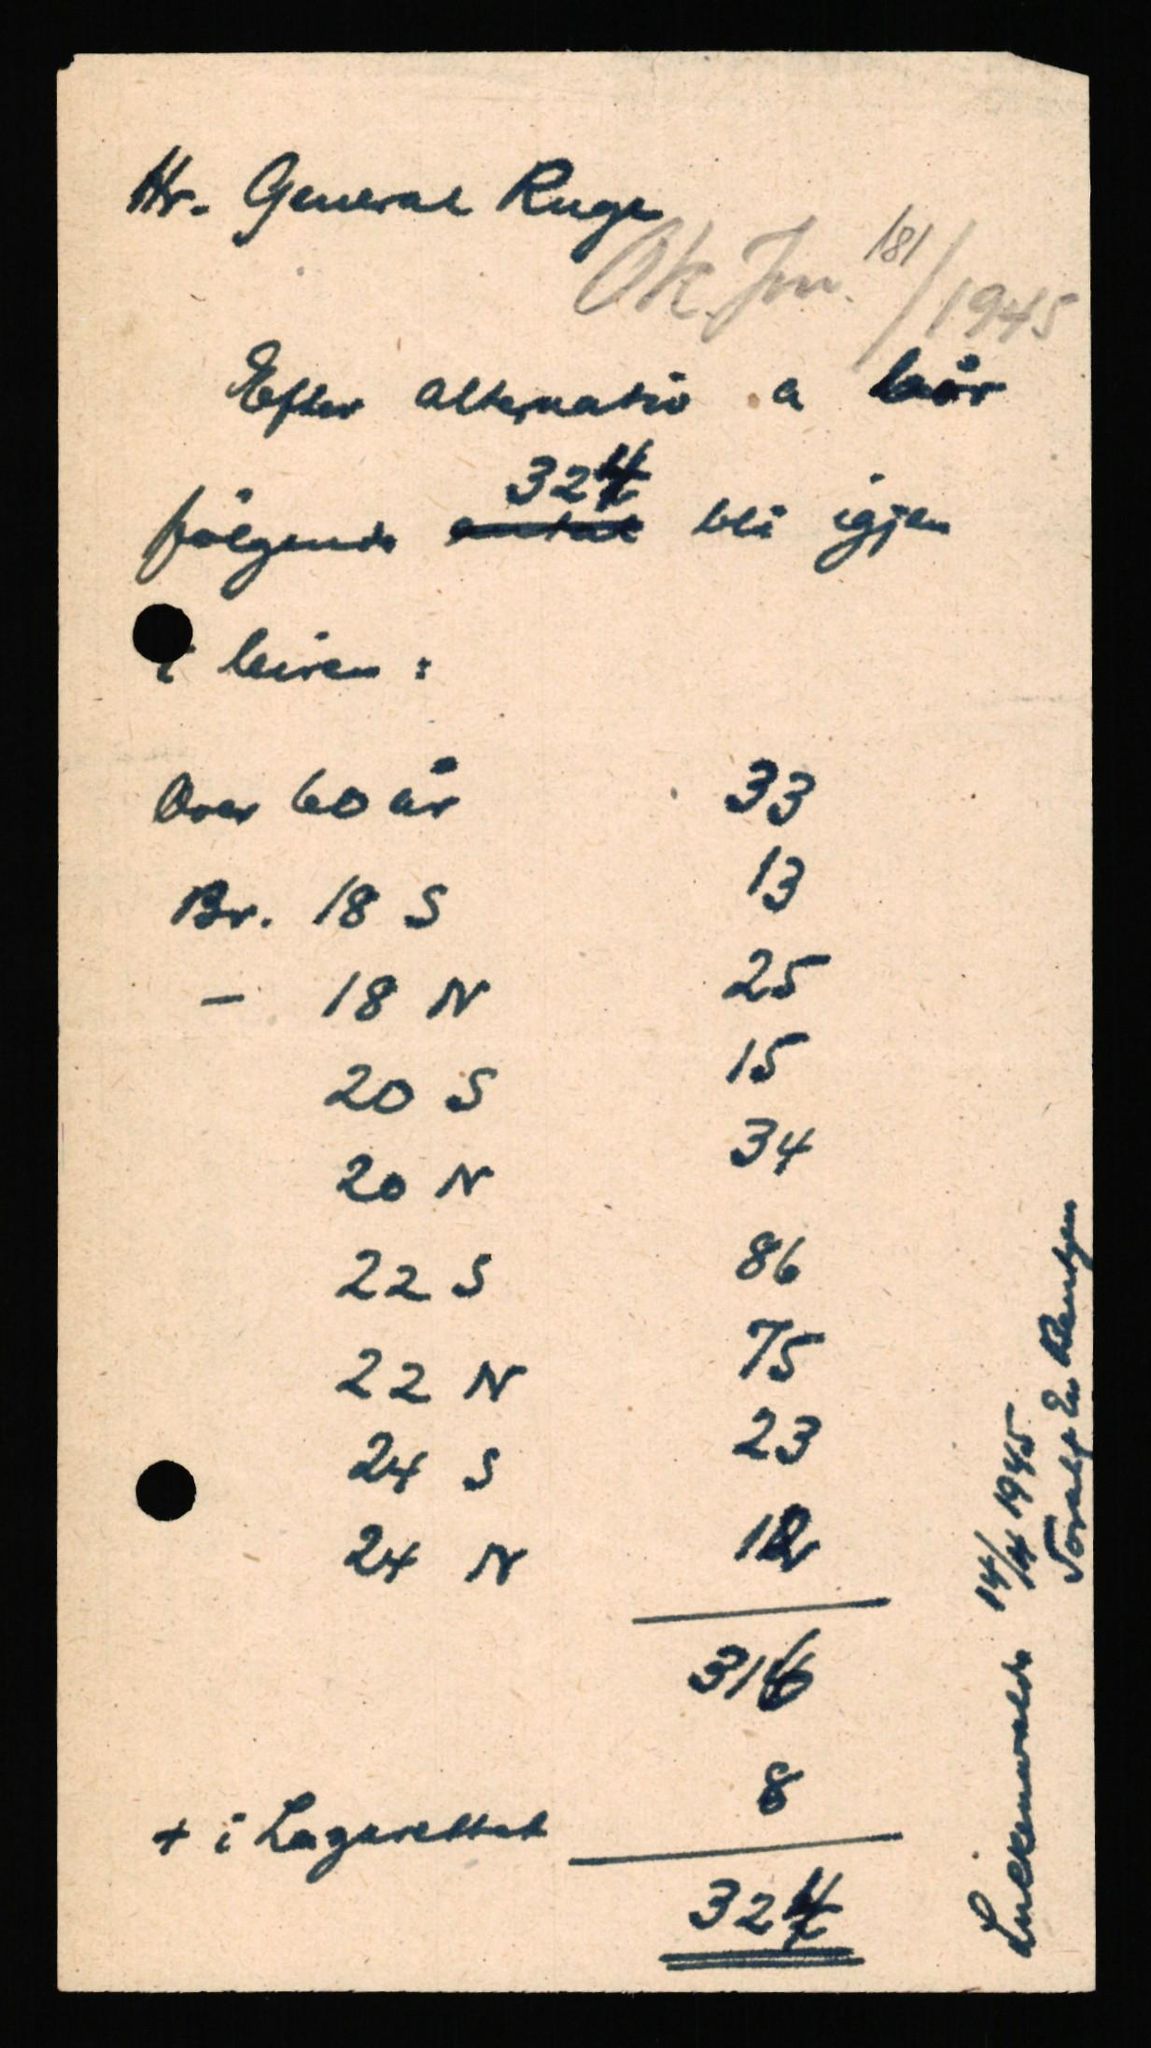 Hr. General Ruge
OK. Jnr. 181/1945
Efter alternativ a bör
324
följende antal bli igjen
i leiren :
Over 60 år 33
Br. 18 S 13
– 18 N 25
20 S 15
20 N 34
22 S 86
22 N 75
24 S 23
24 N 12
316
+ i Lazarettet 8
324
Luckenwalde 14/4 1945
Toralf Bentzen